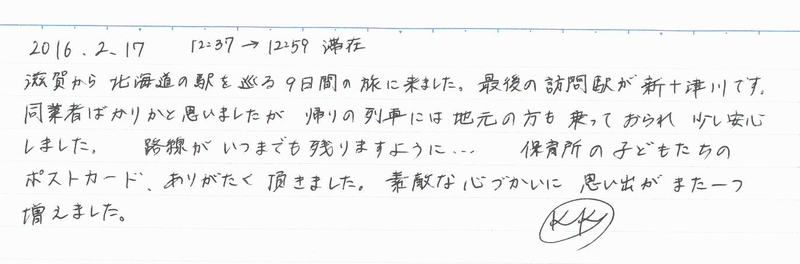 2016.2.17 12:37→12:59 滞在
滋賀から 北海道の駅を巡る 9日間の旅に来ました。最後の訪問駅が新十津川です。
同業者ばかりかと思いましたが 帰りの列車には地元の方も乗っておられ 少し安心
しました。 路線がいつまでも残りますように… 保育所の子どもたちの
ポストカード、ありがたく頂きました。素敵な心づかいに 思い出がまた一つ
増えました。
KKy